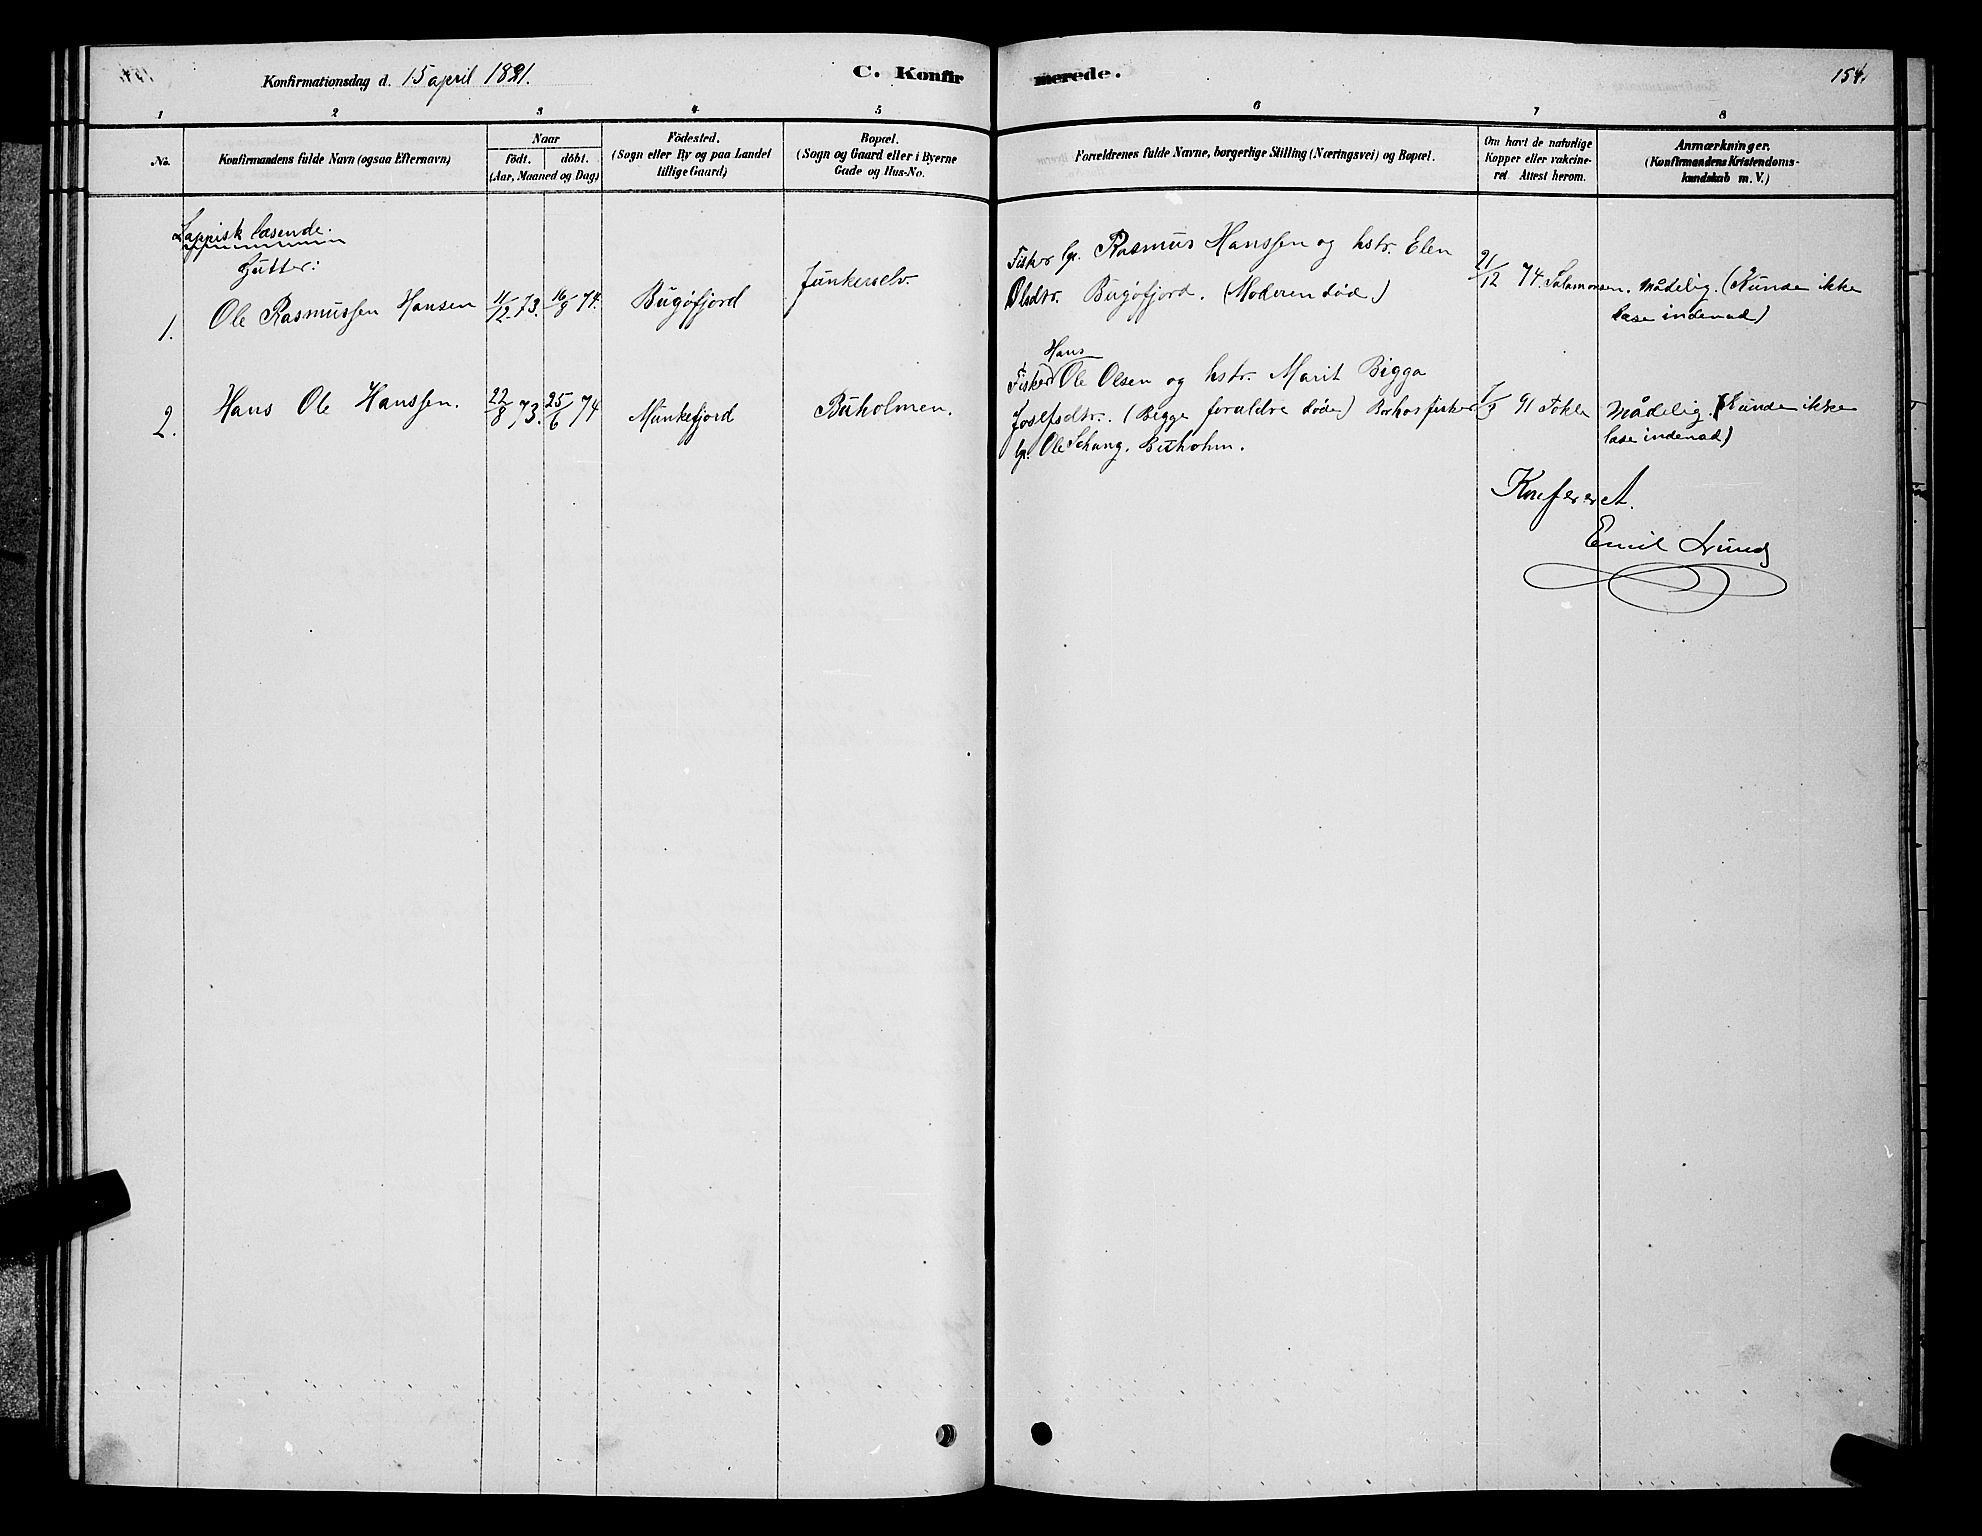 Konfirmationsdag d. 15 april 1891.
C. Konfirmerede.
154.
1 2 3 4 5 6 7 8
No.
Konfirmandens fulde Navn (ogsaa Efternavn)
Naar
födt. döbt.
(Aar, Maaned og Dag)
Födested.
(Sogn eller By og paa Landet
tillige Gaard)
Bopæl.
(Sogn og Gaard eller i Byerne
Gade og Hus-No.
Forældrenes fulde Navne, borgerlige Stilling (Næringsvei) og Bopæl.
Om havt de naturlige
Kopper eller vakcine-
ret Attest herom.
Anmærkninger.
(Konfirmandens Kristendoms-
kundskab m. V.)
Lappisk læsende.
Gutter:
1. Ole Rasmussen Hansen 11/12 73. 16/3 74. Bugöfjord Junkerselv.
Fisker lp. Rasmus Hanssen og hstr. Elen
Olsdtr. Bugöfjord. (Moderen död)
21/12 74 Salamonsen. Mådelig. (Kunde ikke
læse indenad)
2. Hans Ole Hanssen. 22/8 73. 25/6 74 Munkefjord Buholmen.
Hans
Fisker Ole Olsen og hstr. Marit Bigga
Josefsdtr. (Begge forældre döde) Bor hos fisker
lp. Ole Schang. Buholm.
91 Mådelig. (Kunde ikke
læse indenad)
Konfereret.
Emil Lund